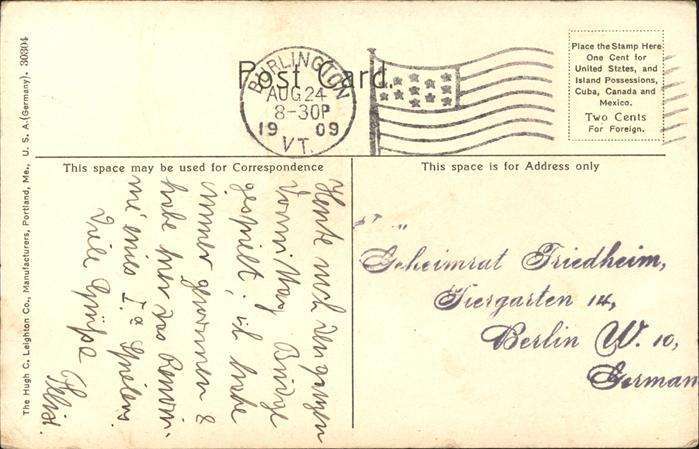 Post Card.
BURLINGTON
AUG 24
8-30P
1909
VT.
Place the Stamp Here
One Cent for
United States, and
Island Possessions,
Cuba, Canada and
Mexico.
Two Cents
For Foreign.
This space may be used for Correspondence
This space is for Address only
Heute noch den ganzen
Vormittag Bridge
gespielt, ich habe
immer gewonnen &
habe hier das
eines Ia Spielers
Viele Grüße Felix.
Geheimrat Friedheim,
Tiergarten 14,
Berlin W. 10,
German
The Hugh C. Leighton Co., Manufacturers, Portland, Me., U. S. A. (Germany). 30304